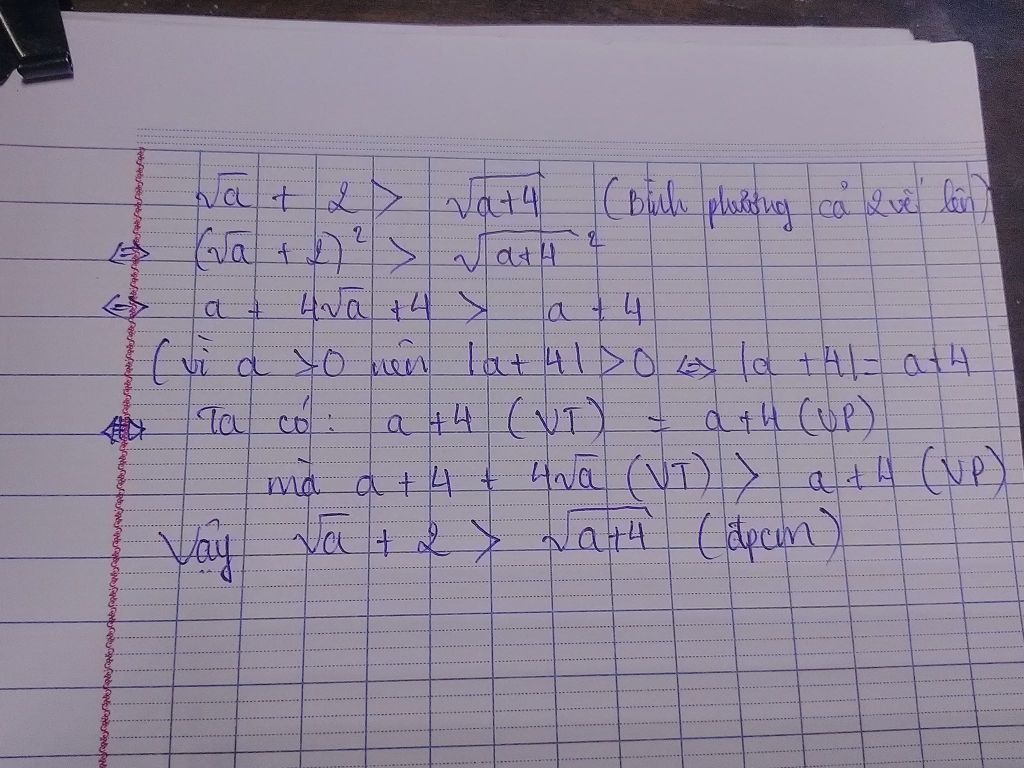 √a + 2 > √(a+4) (Bình phương cả 2 vế lên)
⇔ (√a + 2)² > √(a+4)²
⇔ a + 4√a + 4 > a + 4
(Vì a > 0 nên |a + 4| > 0 ⇔ |a + 4| = a+4
Ta có: a + 4 (VT) = a + 4 (VP)
mà a + 4 + 4√a (VT) > a + 4 (VP)
Vậy √a + 2 > √(a+4) (đpcm)